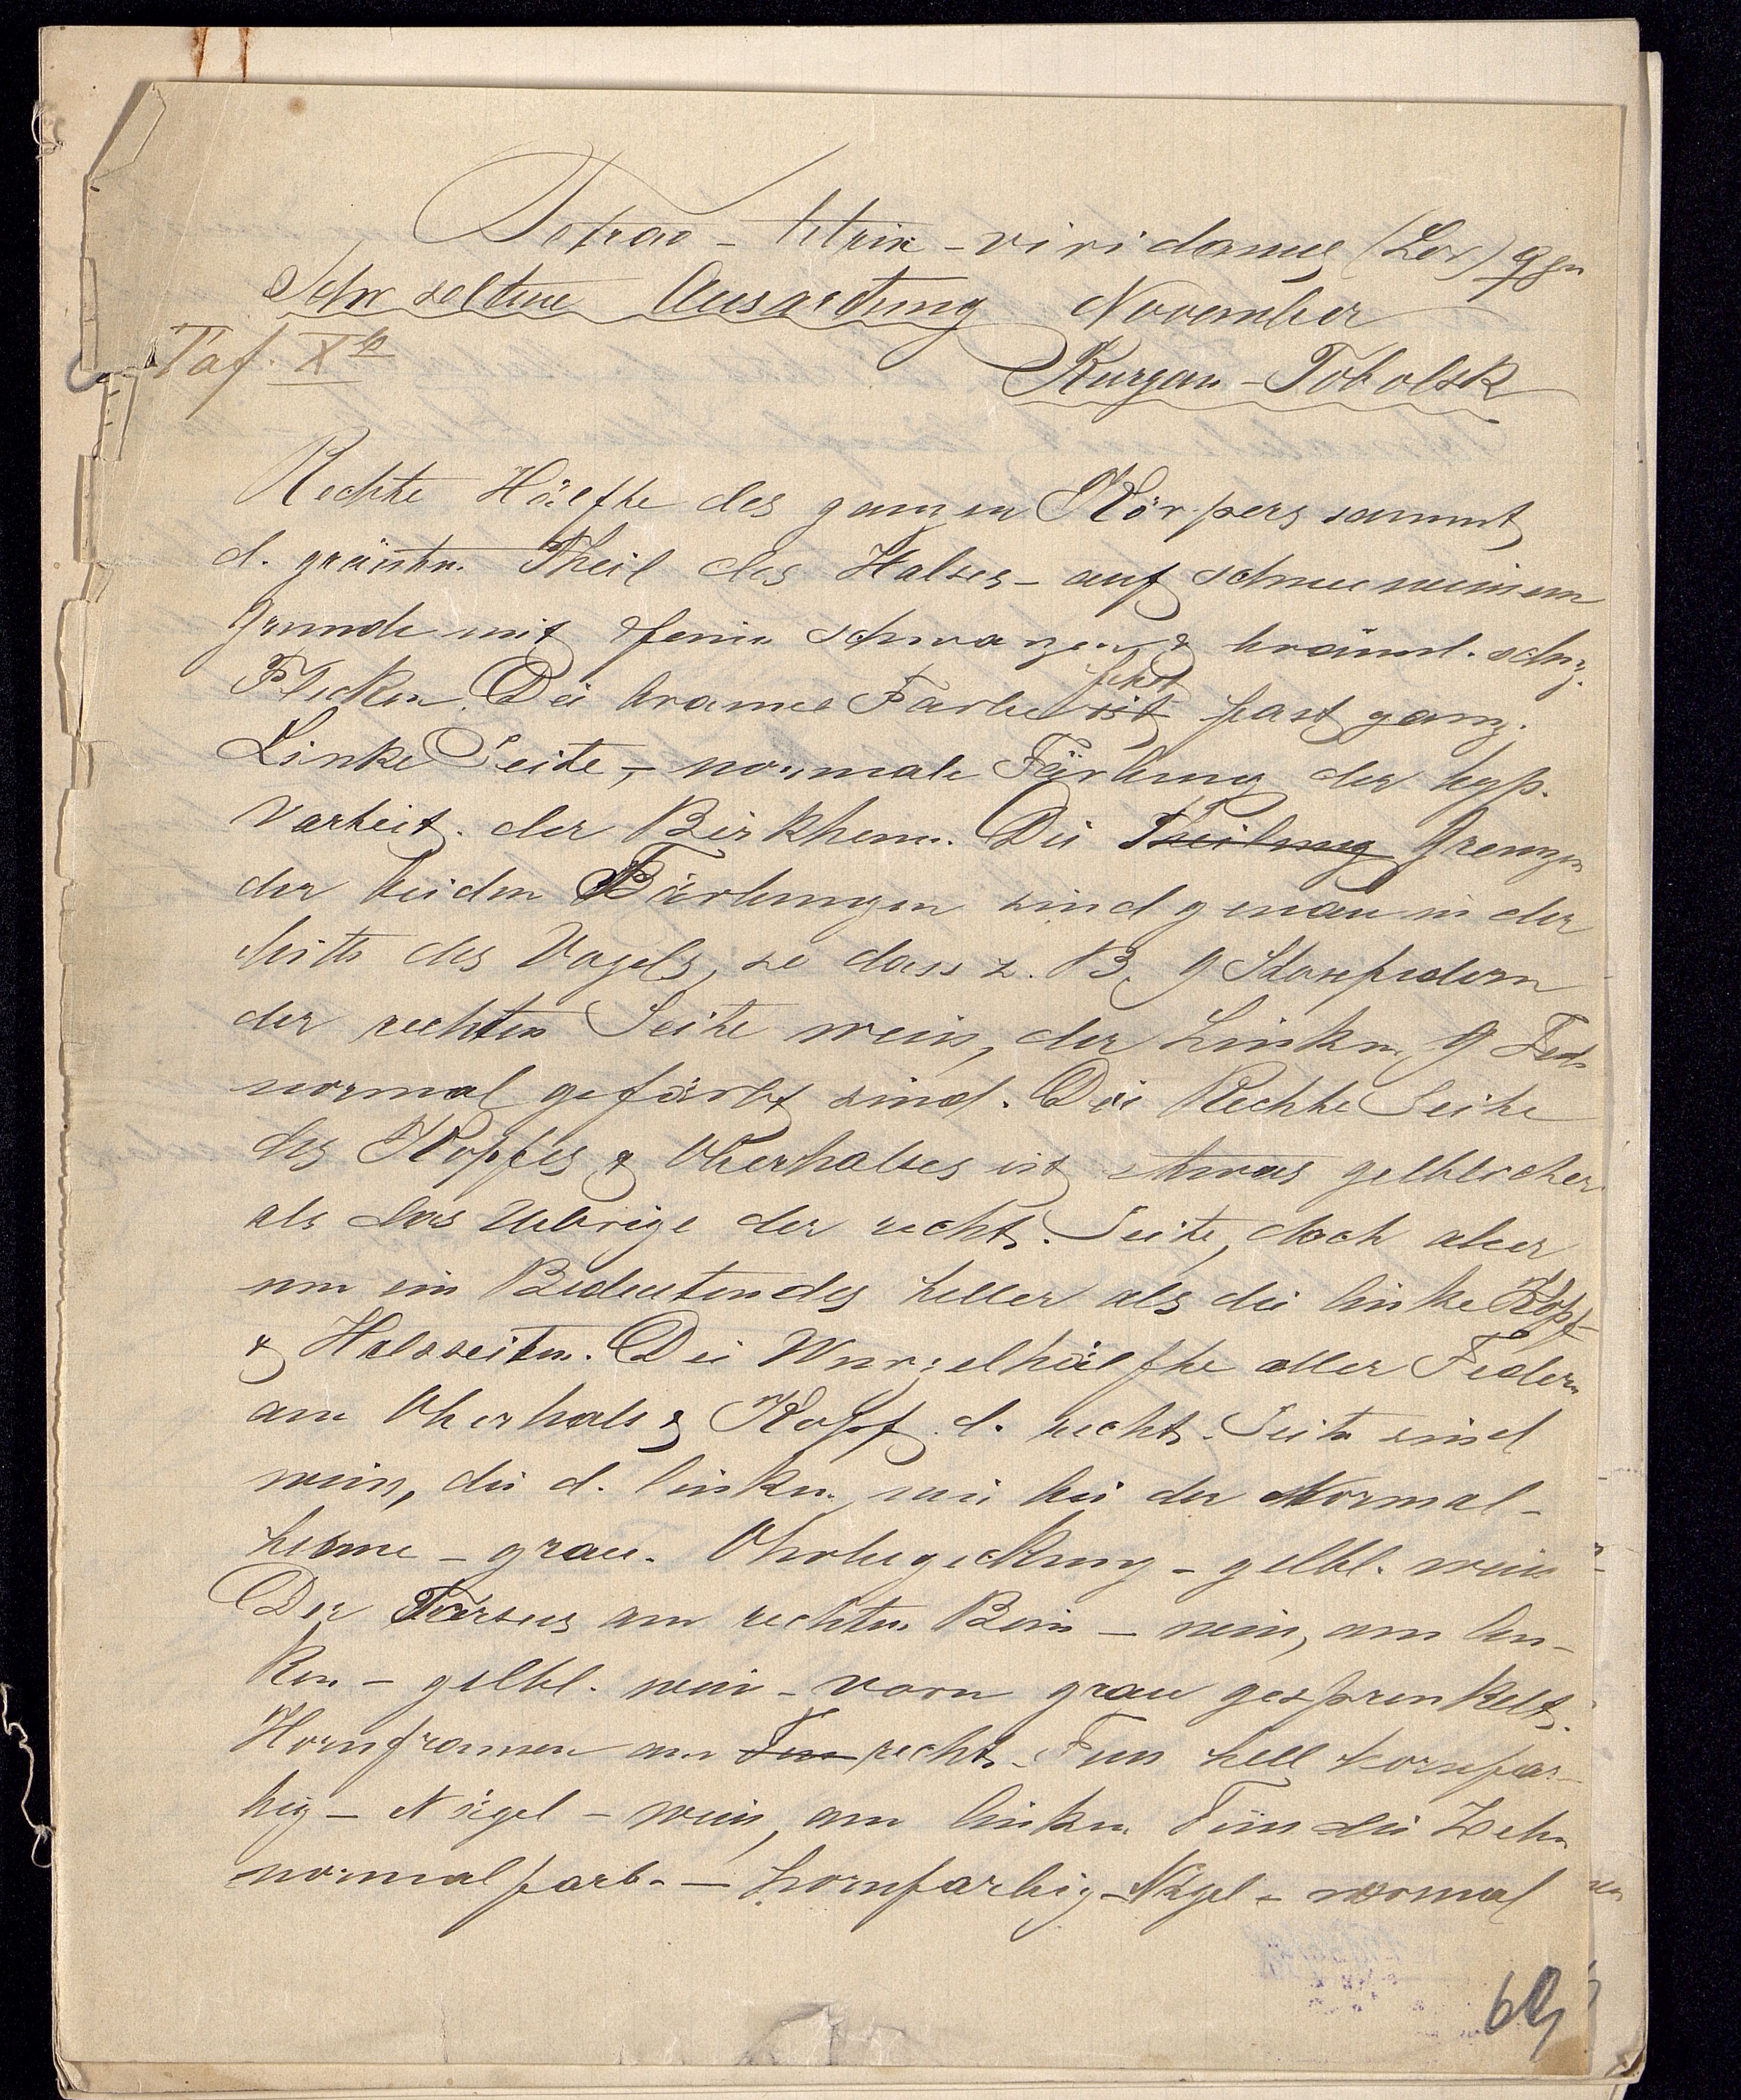 Tetrao - tetrix - viridanus (Lor) ♀
Sehr seltene Ausartung November
Taf. X b
Kurgan - Tobolsk
Rechte Hälfte des ganzen Körpers sammt
d. grössten Theil des Halses - auf schneeweissem
Grunde mit feinen schwarzen & bräunl. schw.
Flecken. Die braune Farbe ist fehlt fast ganz.
Linke Seite, - normale Färbung der typ.
Varietät. der Birkhenne. Die Theilung Grenzen
der beiden Färbungen sind genau in der
Mitte des Vogels, so dass z. B. 9 Steuerfedern
der rechten Seite weiss, der Linken 9 Fed.
normal gefärbt sind. Die Rechte Seite
des Kopfes & Oberhalses ist etwas gelblicher
als das Uebrige der recht. Seite, doch aber
um ein Bedeutendes heller als die linke Kopf
& Halsseiten. Die Wurzelhälfte aller Federn
am Oberhals & Kopf d. recht. Seite sind
weiss, die d. linken wie bei der Normal-
henne - grau. Ohrbedeckung - gelbl. weiss
Der Tarsus am rechten Bein - weiss, am lin-
ken - gelbl. weiss - vorn grau gesprenkelt.
Hornfransen am Fuss recht. Fuss hell hornfar-
big - Nägel - weiss, am linken Fuss die Zehen
normalfarb. - hornfarbig - Nägel - normal
69